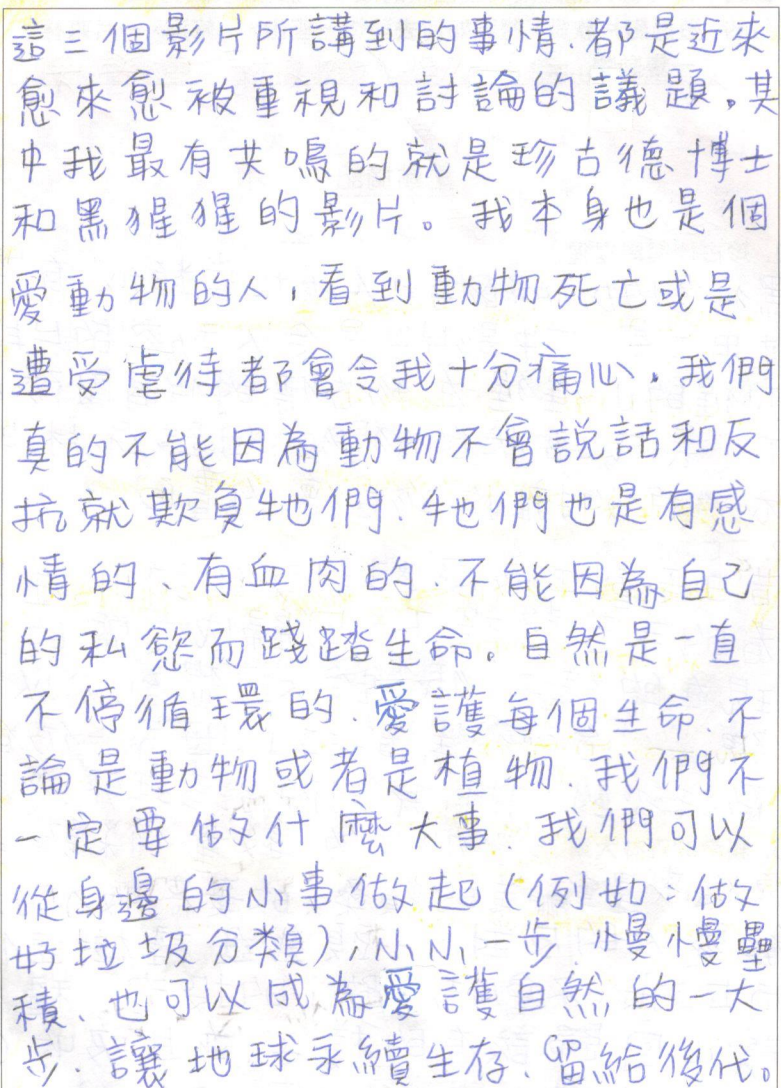 這三個影片所講到的事情、都是近來
愈來愈被重視和討論的議題。其
中我最有共鳴的就是珍古德博士
和黑猩猩的影片。我本身也是個
愛動物的人,看到動物死亡或是
遭受虐待都會令我十分痛心。我們
真的不能因為動物不會說話和反
抗就欺負牠們、牠們也是有感
情的、有血肉的、不能因為自己
的私慾而踐踏生命。自然是一直
不停循環的、愛護每個生命、不
論是動物或者是植物、我們不
一定要做什麼大事、我們可以
從身邊的小事做起(例如:做
好垃圾分類),小小一步、慢慢壘
積、也可以成為愛護自然的一大
步、讓地球永續生存、留給後代。